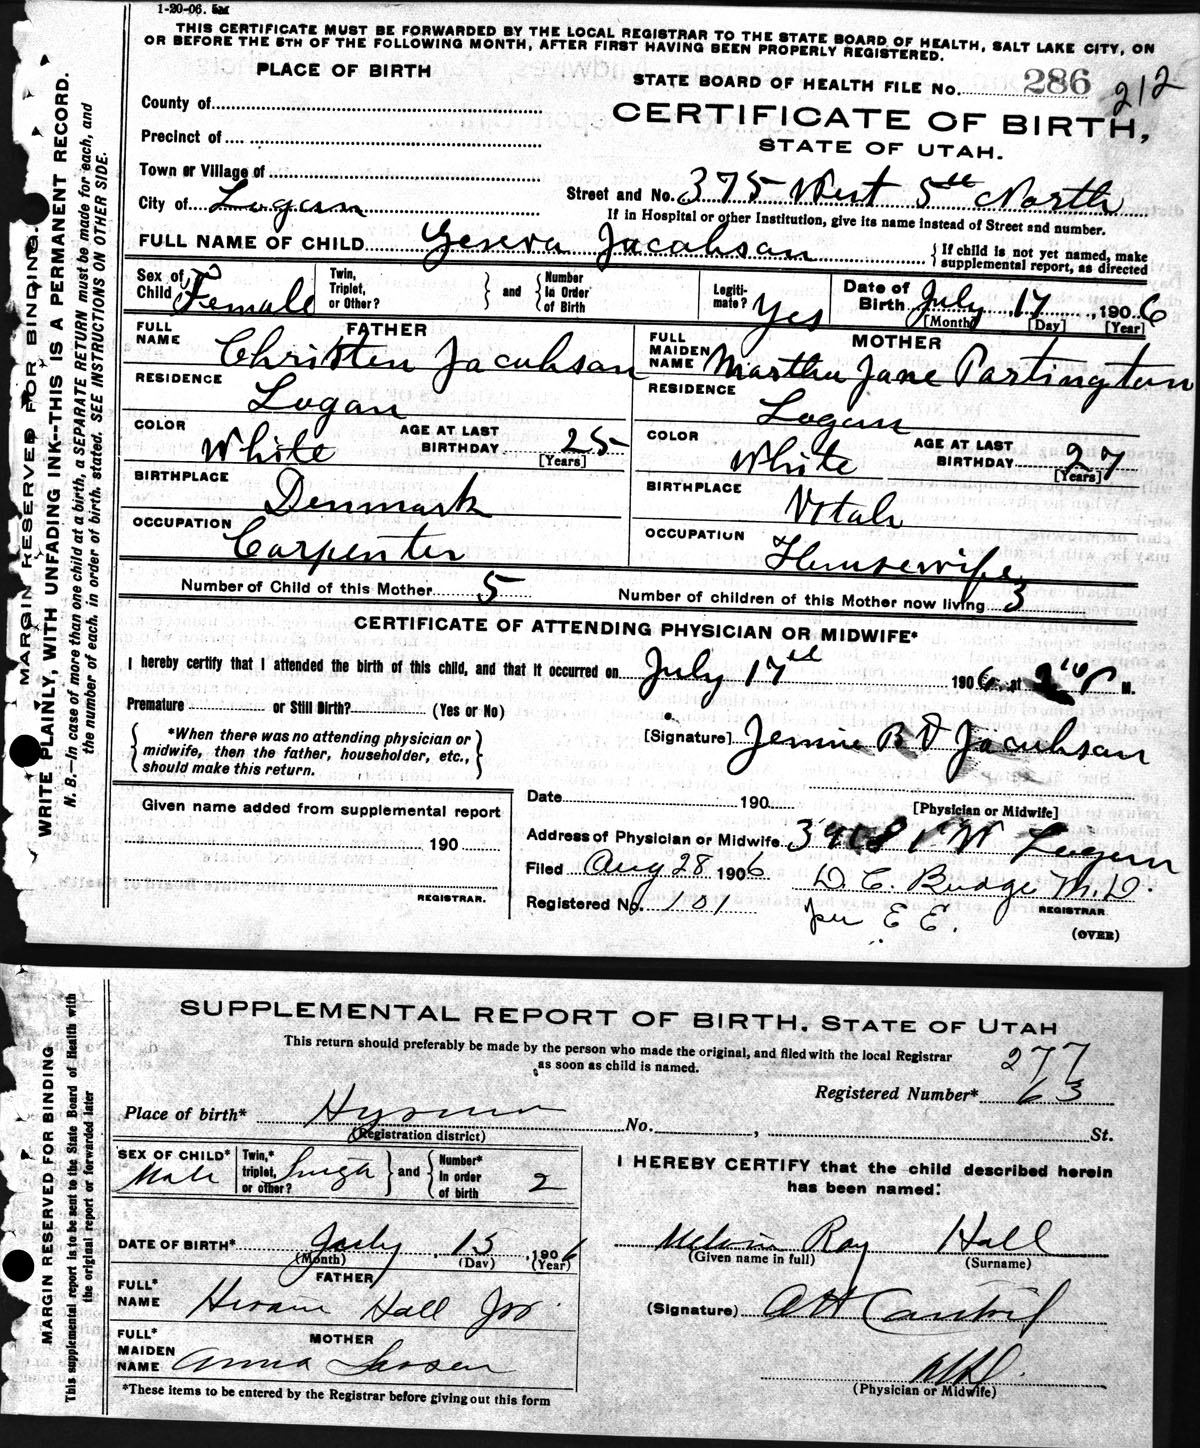 1-20-06. 5M
THIS CERTIFICATE MUST BE FORWARDED BY THE LOCAL REGISTRAR TO THE STATE BOARD OF HEALTH, SALT LAKE CITY, ON
OR BEFORE THE 5TH OF THE FOLLOWING MONTH, AFTER FIRST HAVING BEEN PROPERLY REGISTERED.
MARGIN RESERVED FOR BINDING.
WRITE PLAINLY, WITH UNFADING INK--THIS IS A PERMANENT RECORD.
N. B.—In case of more than one child at a birth, a SEPARATE RETURN must be made for each, and
the number of each, in order of birth, stated. SEE INSTRUCTIONS ON OTHER SIDE.
PLACE OF BIRTH
STATE BOARD OF HEALTH FILE No. 286 212
County of
CERTIFICATE OF BIRTH,
Precinct of
STATE OF UTAH.
Town or Village of
City of Logan
Street and No. 375 West 5th North
If in Hospital or other Institution, give its name instead of Street and number.
FULL NAME OF CHILD Geneva Jacobson
{ If child is not yet named, make
supplemental report, as directed
Sex of Child Female
Twin, Triplet, or Other? } and { Number In Order of Birth
Legiti-mate? Yes
Date of Birth July 17, 1906
[Month] [Day] [Year]
FATHER
FULL NAME Christen Jacobson
RESIDENCE Logan
COLOR White
AGE AT LAST BIRTHDAY 25
[Years]
BIRTHPLACE Denmark
OCCUPATION Carpenter
MOTHER
FULL MAIDEN NAME Martha Jane Partington
RESIDENCE Logan
COLOR White
AGE AT LAST BIRTHDAY 27
[Years]
BIRTHPLACE Utah
OCCUPATION Housewife
Number of Child of this Mother 5
Number of children of this Mother now living 3
CERTIFICATE OF ATTENDING PHYSICIAN OR MIDWIFE*
I hereby certify that I attended the birth of this child, and that it occurred on July 17 1906, at 2 P M.
Premature or Still Birth? (Yes or No)
{ *When there was no attending physician or
midwife, then the father, householder, etc.,
should make this return. }
[Signature] Jennie B Jacobson
[Physician or Midwife]
Given name added from supplemental report
190
REGISTRAR.
Date 190
Address of Physician or Midwife Logan
Filed Aug 28 1906
D. C. Budge M.D.
Registered No. 101
REGISTRAR
per E E.
(OVER)
MARGIN RESERVED FOR BINDING
This supplemental report is to be sent to the State Board of Health with
the original report or forwarded later
SUPPLEMENTAL REPORT OF BIRTH, STATE OF UTAH
This return should preferably be made by the person who made the original, and filed with the local Registrar
as soon as child is named.
277
Registered Number* 63
Place of birth* Hyrum No. , St.
(Registration district)
SEX OF CHILD* Male
Twin,* triplet, or other? } and { Number* In order of birth 2
DATE OF BIRTH* July, 15, 1906
(Month) (Day) (Year)
FATHER
FULL* NAME Hiram Hall Jr
MOTHER
FULL* MAIDEN NAME Anna Larsen
*These items to be entered by the Registrar before giving out this form
I HEREBY CERTIFY that the child described herein
has been named:
Melvin Ray Hall
(Given name in full) (Surname)
(Signature)
(Physician or Midwife)